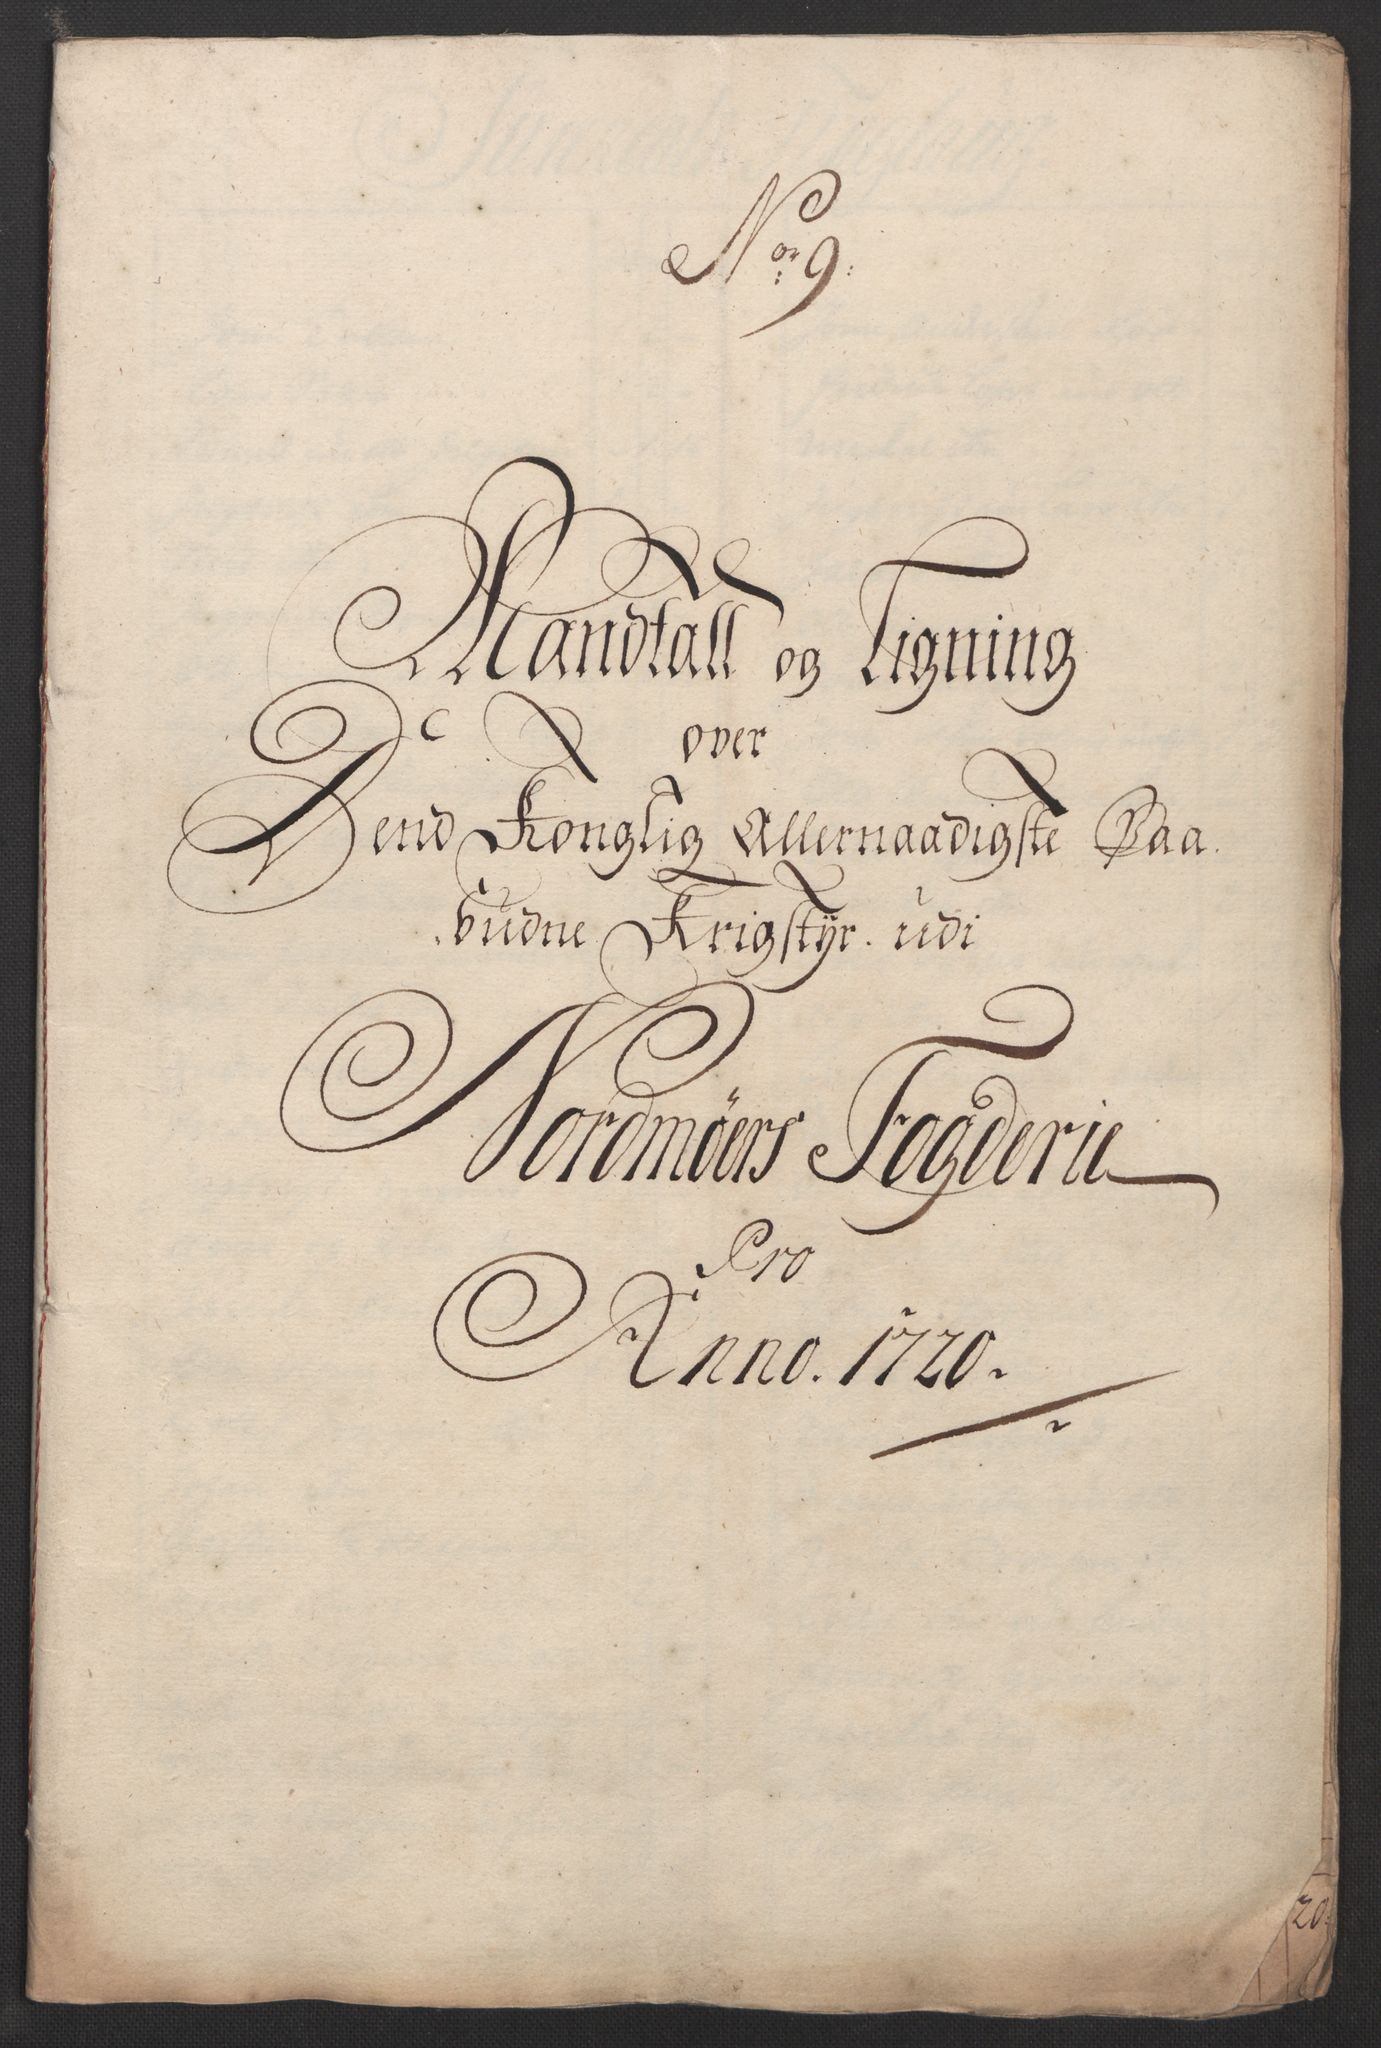 Nor 9.
Mandtall og Ligning
over
Dend Konglig Allernaadigste Paa
budne Krigstÿr. udi
Nordmöers Fogderie
Pro
Anno. 1720.
20